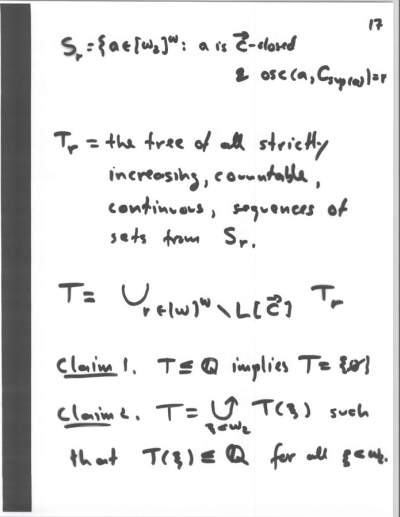 17
S_r = {a ∈ [ω₂]^ω : a is C⃗-closed
& osc(a, C_sup(a)) = r
T_r = the tree of all strictly
increasing, countable,
continuous, sequences of
sets from S_r.
T = ∪_{r ∈ [ω]^ω \ L[C⃗]} T_r
Claim 1. T ≤ ℚ implies T = {∅}
Claim 2. T = ∪_{ξ<ω₂} T(ξ) such
that T(ξ) ≤ ℚ for all ξ<ω₂.